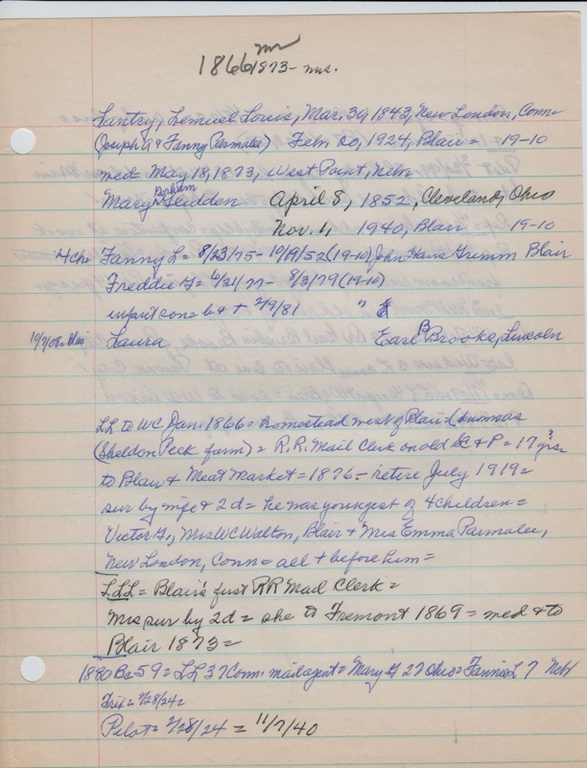 mr
1866 1873 - mrs.
Lantry, Lemuel Louis, Mar. 30, 1843, New London, Conn
(Joseph A & Fanny Parmalee) Feb 20, 1924, Blair = 19-10
med May 18, 1873, West Point, Nebr
Mary Gledden April 8, 1852, Cleveland, Ohio
Nov. 1, 1940, Blair 19-10
4 ch. Fanny L = 8/23/75 - 10/19/52 (19-10) John Hans Grimm Blair
Freddie G = 6/21/77 - 8/3/79 (19-10)
infant son = b & + 2/9/81 "
10/7/08 = Blair Laura Earl B Brooke, Lincoln
LL to WC Jan. 1866 = homestead west of Blair (known as
(Sheldon Peck farm) = R.R. Mail Clerk on old SC & P = 17 yrs ?
to Blair & Meat Market = 1876 - retire July 1919 =
sur by wife & 2 d = he was youngest of 4 children =
Victor G., Mrs WC Walton, Blair & Mrs Emma Parmalee,
New London, Conn = all + before him =
LLL = Blair's first RR Mail Clerk =
Mrs sur by 2d = she to Fremont 1869 = med & to
Blair 1873 =
1880 Bc 59 = LL 37 Conn. mail agent = Mary G 27 Ohio = Fannie L 7 Neb
Trib = 2/28/24 =
Pilot = 2/28/24 = 11/7/40